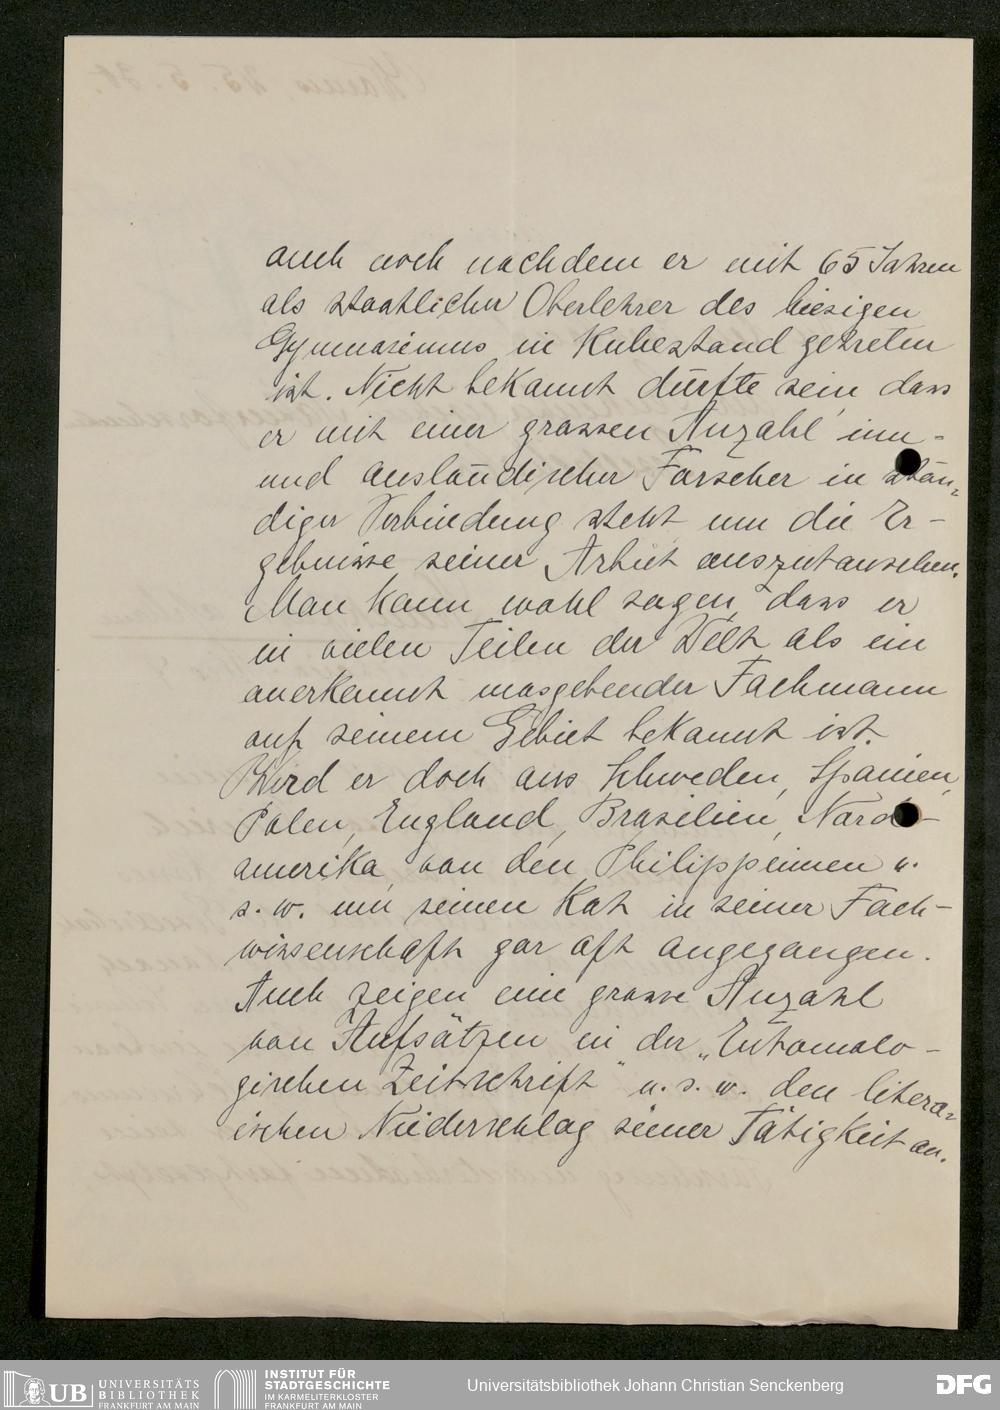 auch noch nachdem er mit 65 Jahren
als staatlicher Oberlehrer des hiesigen
Gymnasiums in Ruhestand getreten
ist. Nicht bekannt dürfte sein, dass
er mit einer grossen Anzahl inn-
und ausländischer Forscher in stän-
diger Verbindung steht um die Er-
gebnisse seiner Arbeit auszutauschen.
Man kann wohl sagen, dass er
in vielen Teilen der Welt als ein
anerkannt masgebender Fachmann
auf seinem Gebiet bekannt ist.
Wird er doch aus Schweden, Spanien,
Polen, England, Brasilien, Nord-
amerika, von den Philippinnen u.
s. w. um seinen Rat in seiner Fach-
wissenschaft gar oft angegangen.
Auch zeigen eine grosse Anzahl
von Aufsätzen in der „Entomolo-
gischen Zeitschrift" u. s. w. den litera-
ischen Niederschlag seiner Tätigkeit an.
UB UNIVERSITÄTS
BIBLIOTHEK
FRANKFURT AM MAIN
INSTITUT FÜR
STADTGESCHICHTE
IM KARMELITERKLOSTER
FRANKFURT AM MAIN
Universitätsbibliothek Johann Christian Senckenberg
DFG